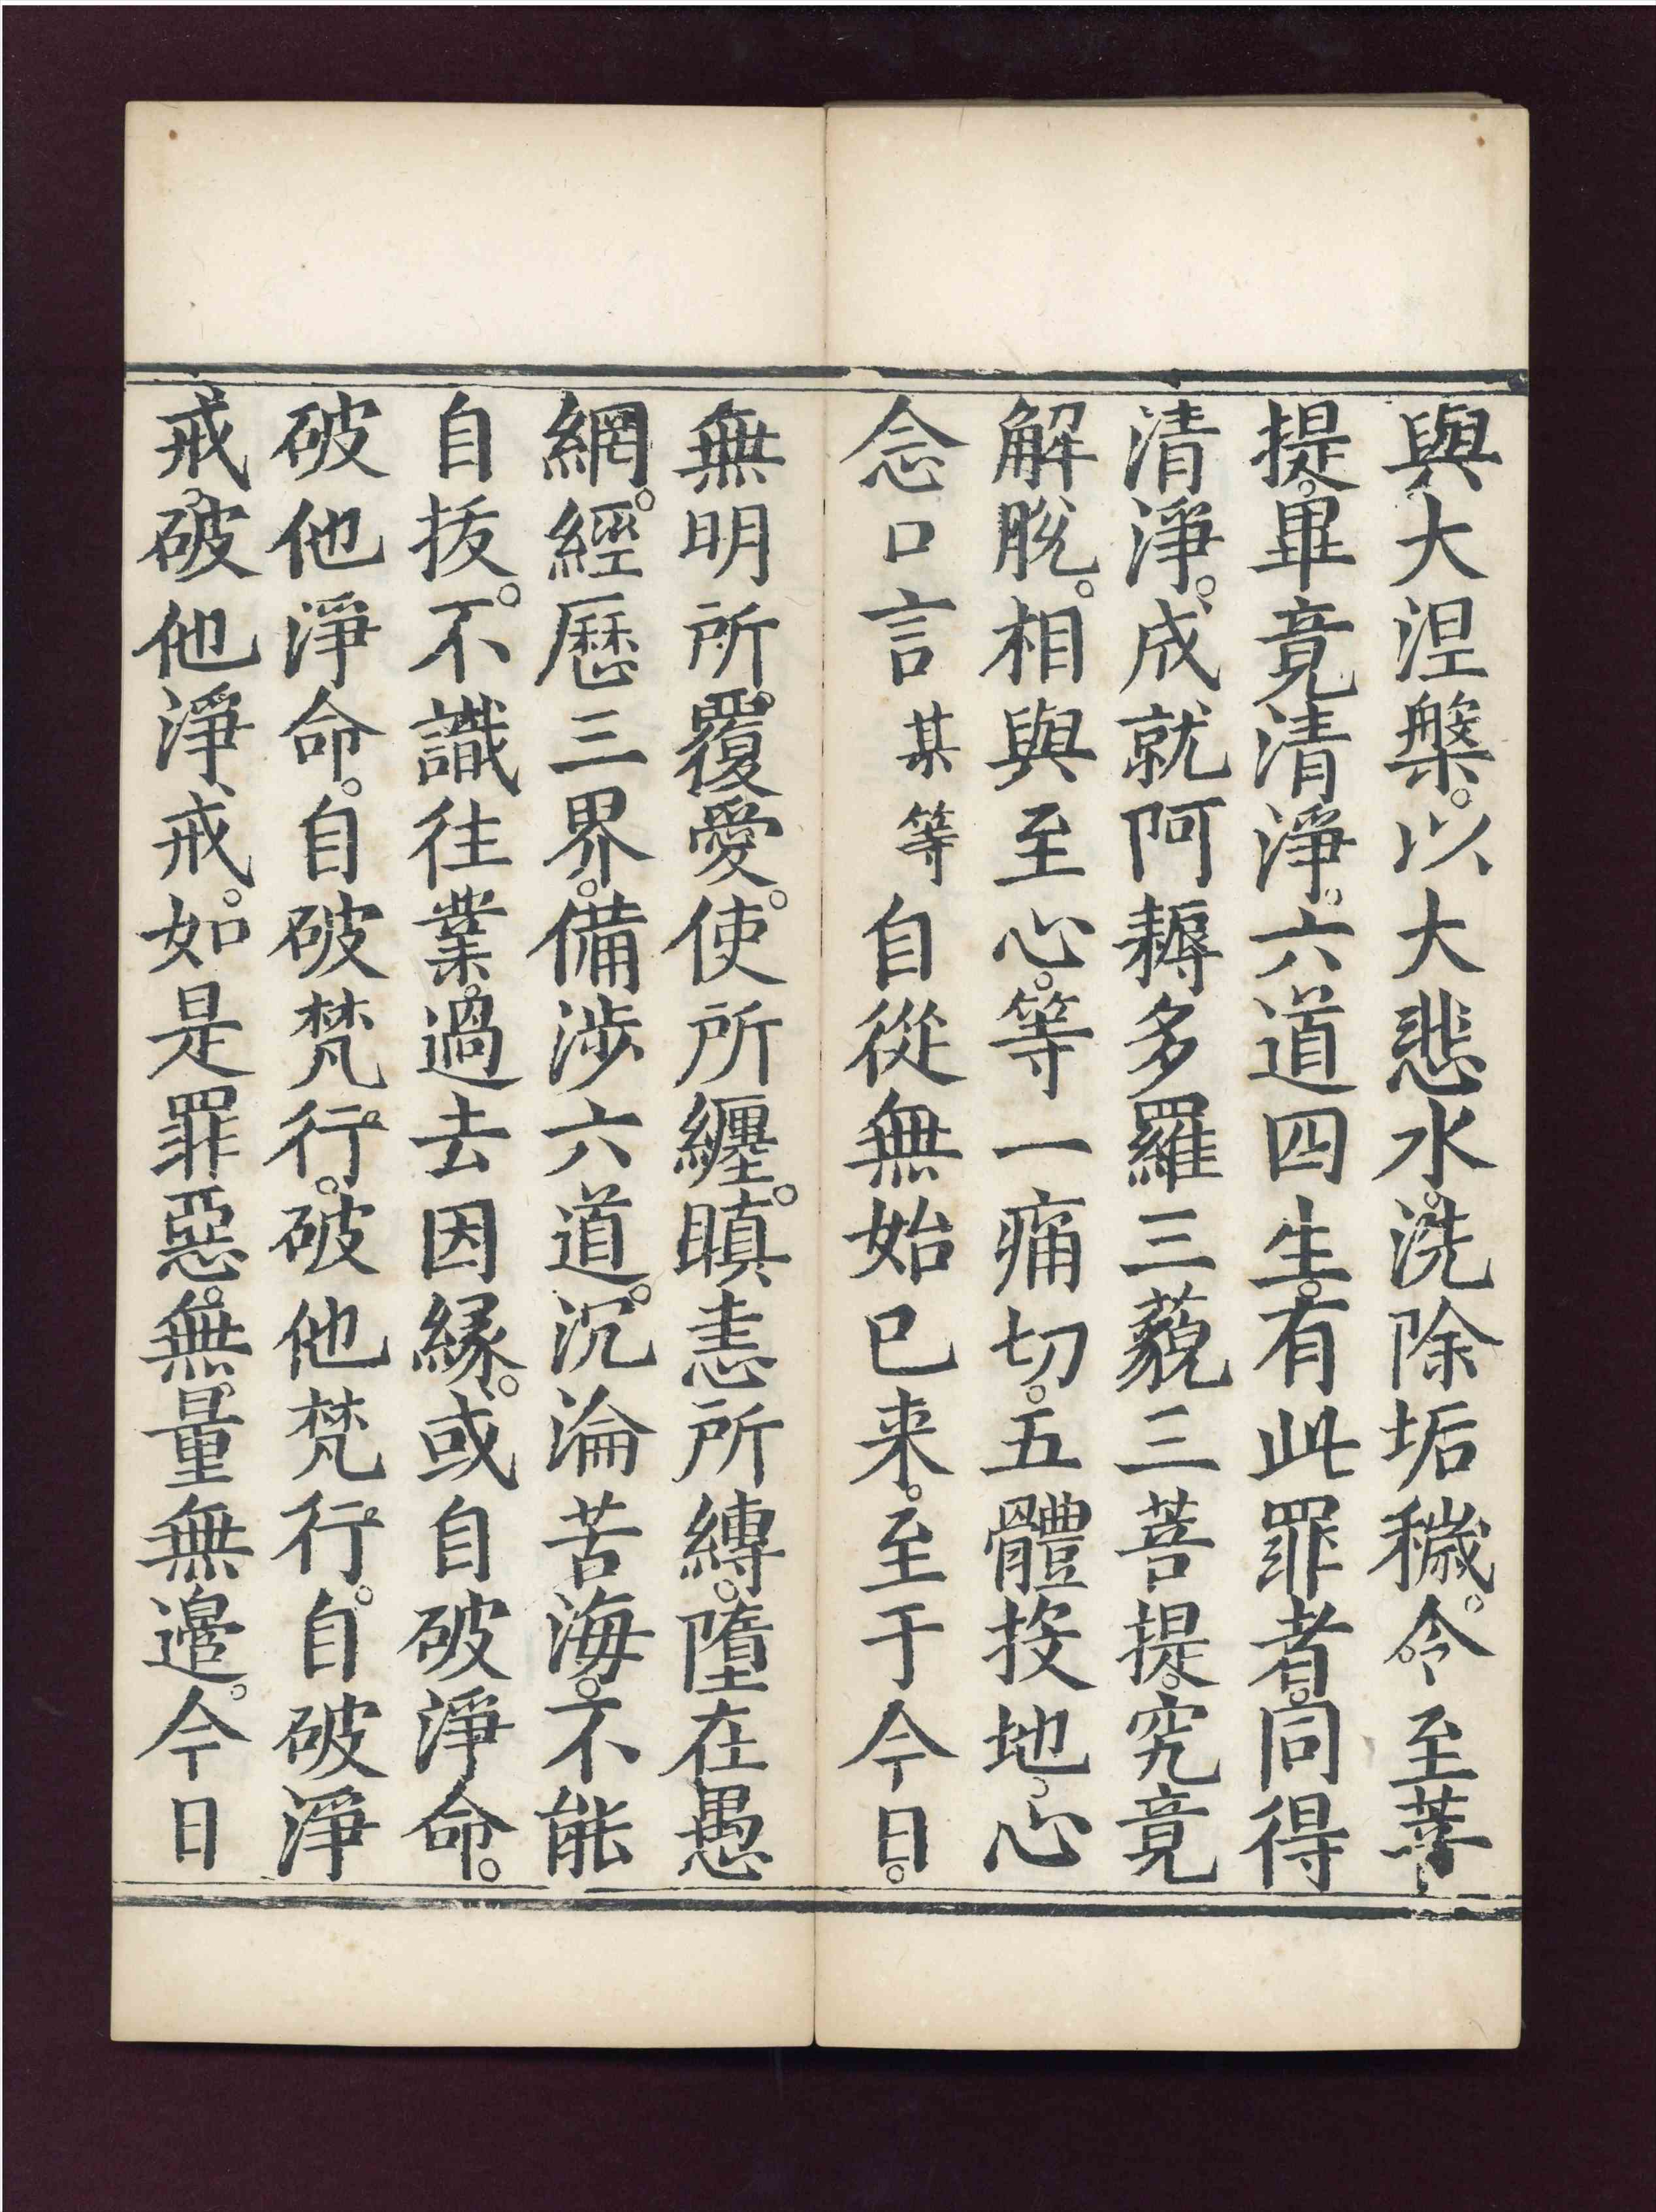 與大涅槃。以大悲水。洗除垢穢。令至菩
提。畢竟清淨。六道四生。有此罪者。同得
清淨。成就阿耨多羅三藐三菩提。究竟
解脫。相與至心。等一痛切。五體投地。心
念口言某等自從無始已来。至于今日。
無明所覆。愛使所纏。瞋恚所縛。墮在愚
網。經歷三界。備涉六道。沉淪苦海。不能
自拔。不識往業。過去因緣。或自破淨命。
破他淨命。自破梵行。破他梵行。自破淨
戒。破他淨戒。如是罪惡。無量無邊。今日